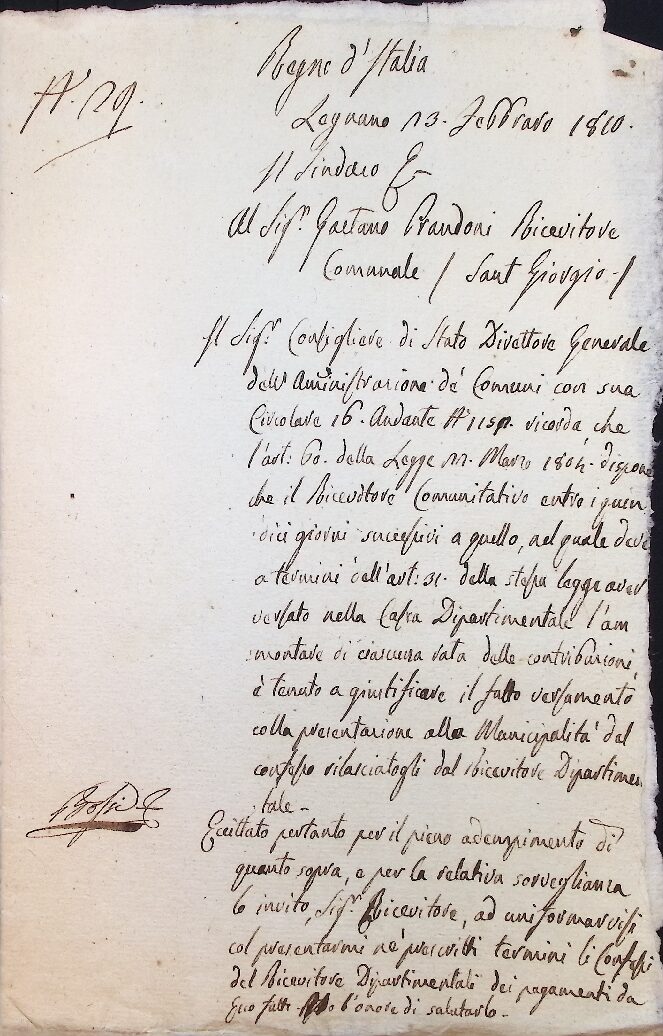 Regno d'Italia
N.° 29.
Legnano 23. Febbraro 1810.
Il Sindaco
Al Sig.r Gaetano Prandoni Ricevitore
Comunale / Sant Giorgio /
Il Sig.r Consigliere di Stato Direttore Generale
dell'Amministrazione de' Comuni con sua
Circolare 16. Andante N.° ricorda che
l'art: 60. della Legge 22. Marzo 1804. dispone
che il Ricevitore Comunitativo entro i quin
dici giorni successivi a quello, nel quale deve
a termini dell'art: 31. della stessa legge aver
versato nella Cassa Dipartimentale l'am
montare di ciascuna rata delle contribuzioni,
è tenuto a giustificare il fatto versamento
colla presentazione alla Municipalità del
confesso rilasciatogli dal Ricevitore Dipartimen
tale -
Bossi
Eccittato pertanto per il pieno adempimento di
quanto sopra, e per la relativa sorveglianza
lo invito, Sig.r Ricevitore, ad uniformarvisi
col presentarmi ne' prescritti termini li Confessi
del Ricevitore Dipartimentale dei pagamenti da
Esso fatti l'onore di salutarlo -